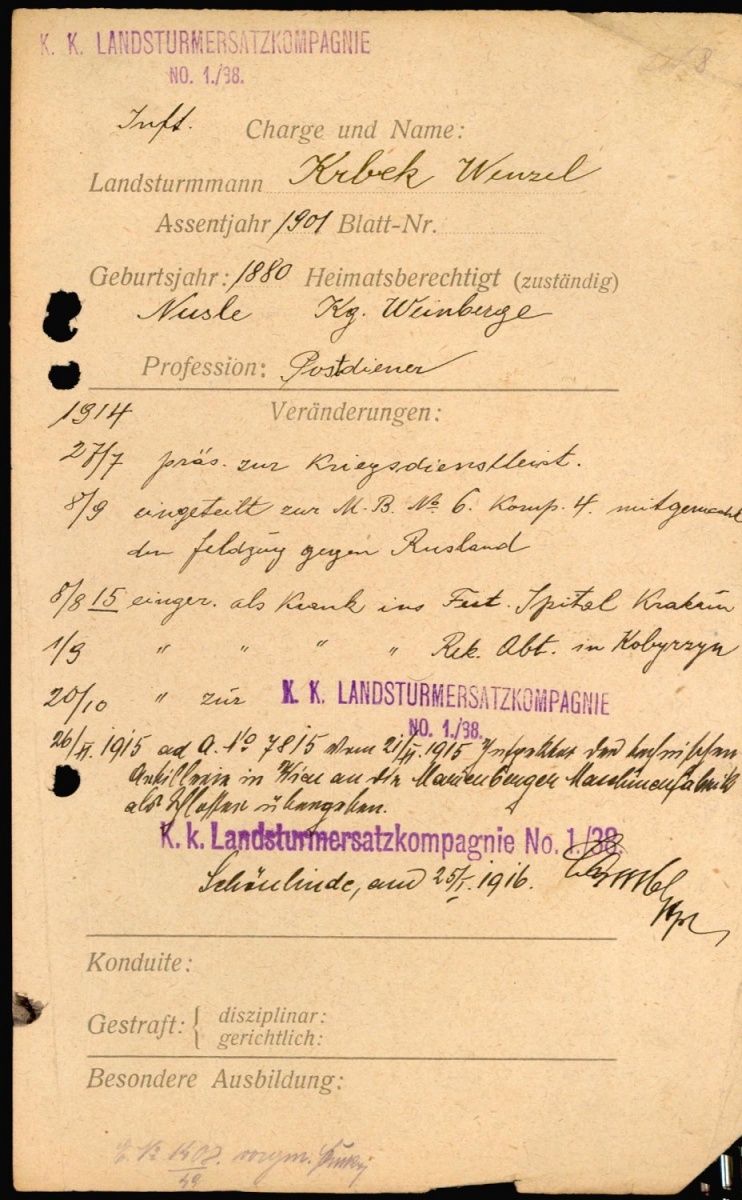 K. K. LANDSTURMERSATZKOMPAGNIE
NO. 1./38.
Inft. Charge und Name:
Landsturmmann Krbek Wenzel
Assentjahr 1901 Blatt-Nr.
Geburtsjahr: 1880 Heimatsberechtigt (zuständig)
Nusle Kg. Weinberge
Profession: Postdiener
1914 Veränderungen:
27/7 präs. zur Kriegsdienstleist.
8/9 eingeteilt zur M. B. No. 6. Komp. 4. mitgemacht
den Feldzug gegen Rusland
8/8 15 einger. als Krank ins Fest. Spital Krakau
1/9 " " " " Rek. Abt. in Kobyrzyn
20/10 " zur K. K. LANDSTURMERSATZKOMPAGNIE
NO. 1./38.
26/XI. 1915 ad A. No 7815 vom 21/XI. 1915 der technischen
Artillerie in Wien an die Marienberger Maschinenfabrik
als Schlosser übergeben.
K. k. Landsturmersatzkompagnie No. 1./38.
Schönlinde, am 25/I. 1916.
Konduite:
Gestraft: { disziplinar:
gerichtlich:
Besondere Ausbildung: